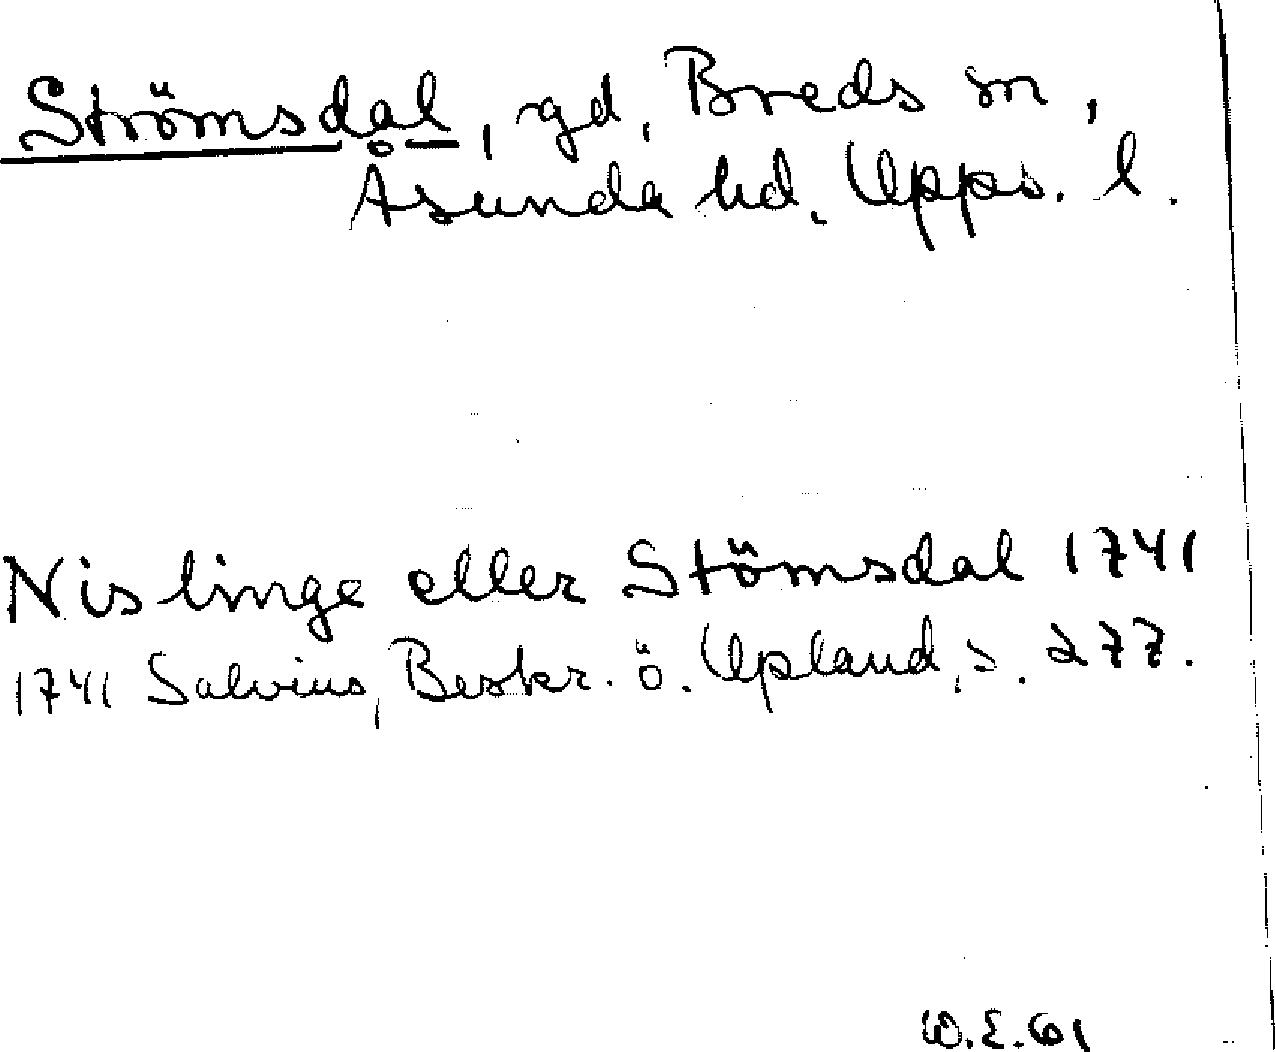 Strömsdal, gd, Breds sn,
Åsunda hd, Upps. l.
Nislinge eller Stömsdal 1741
1741 Salvius, Beskr. ö. Upland, s. 277.
W.E. 61